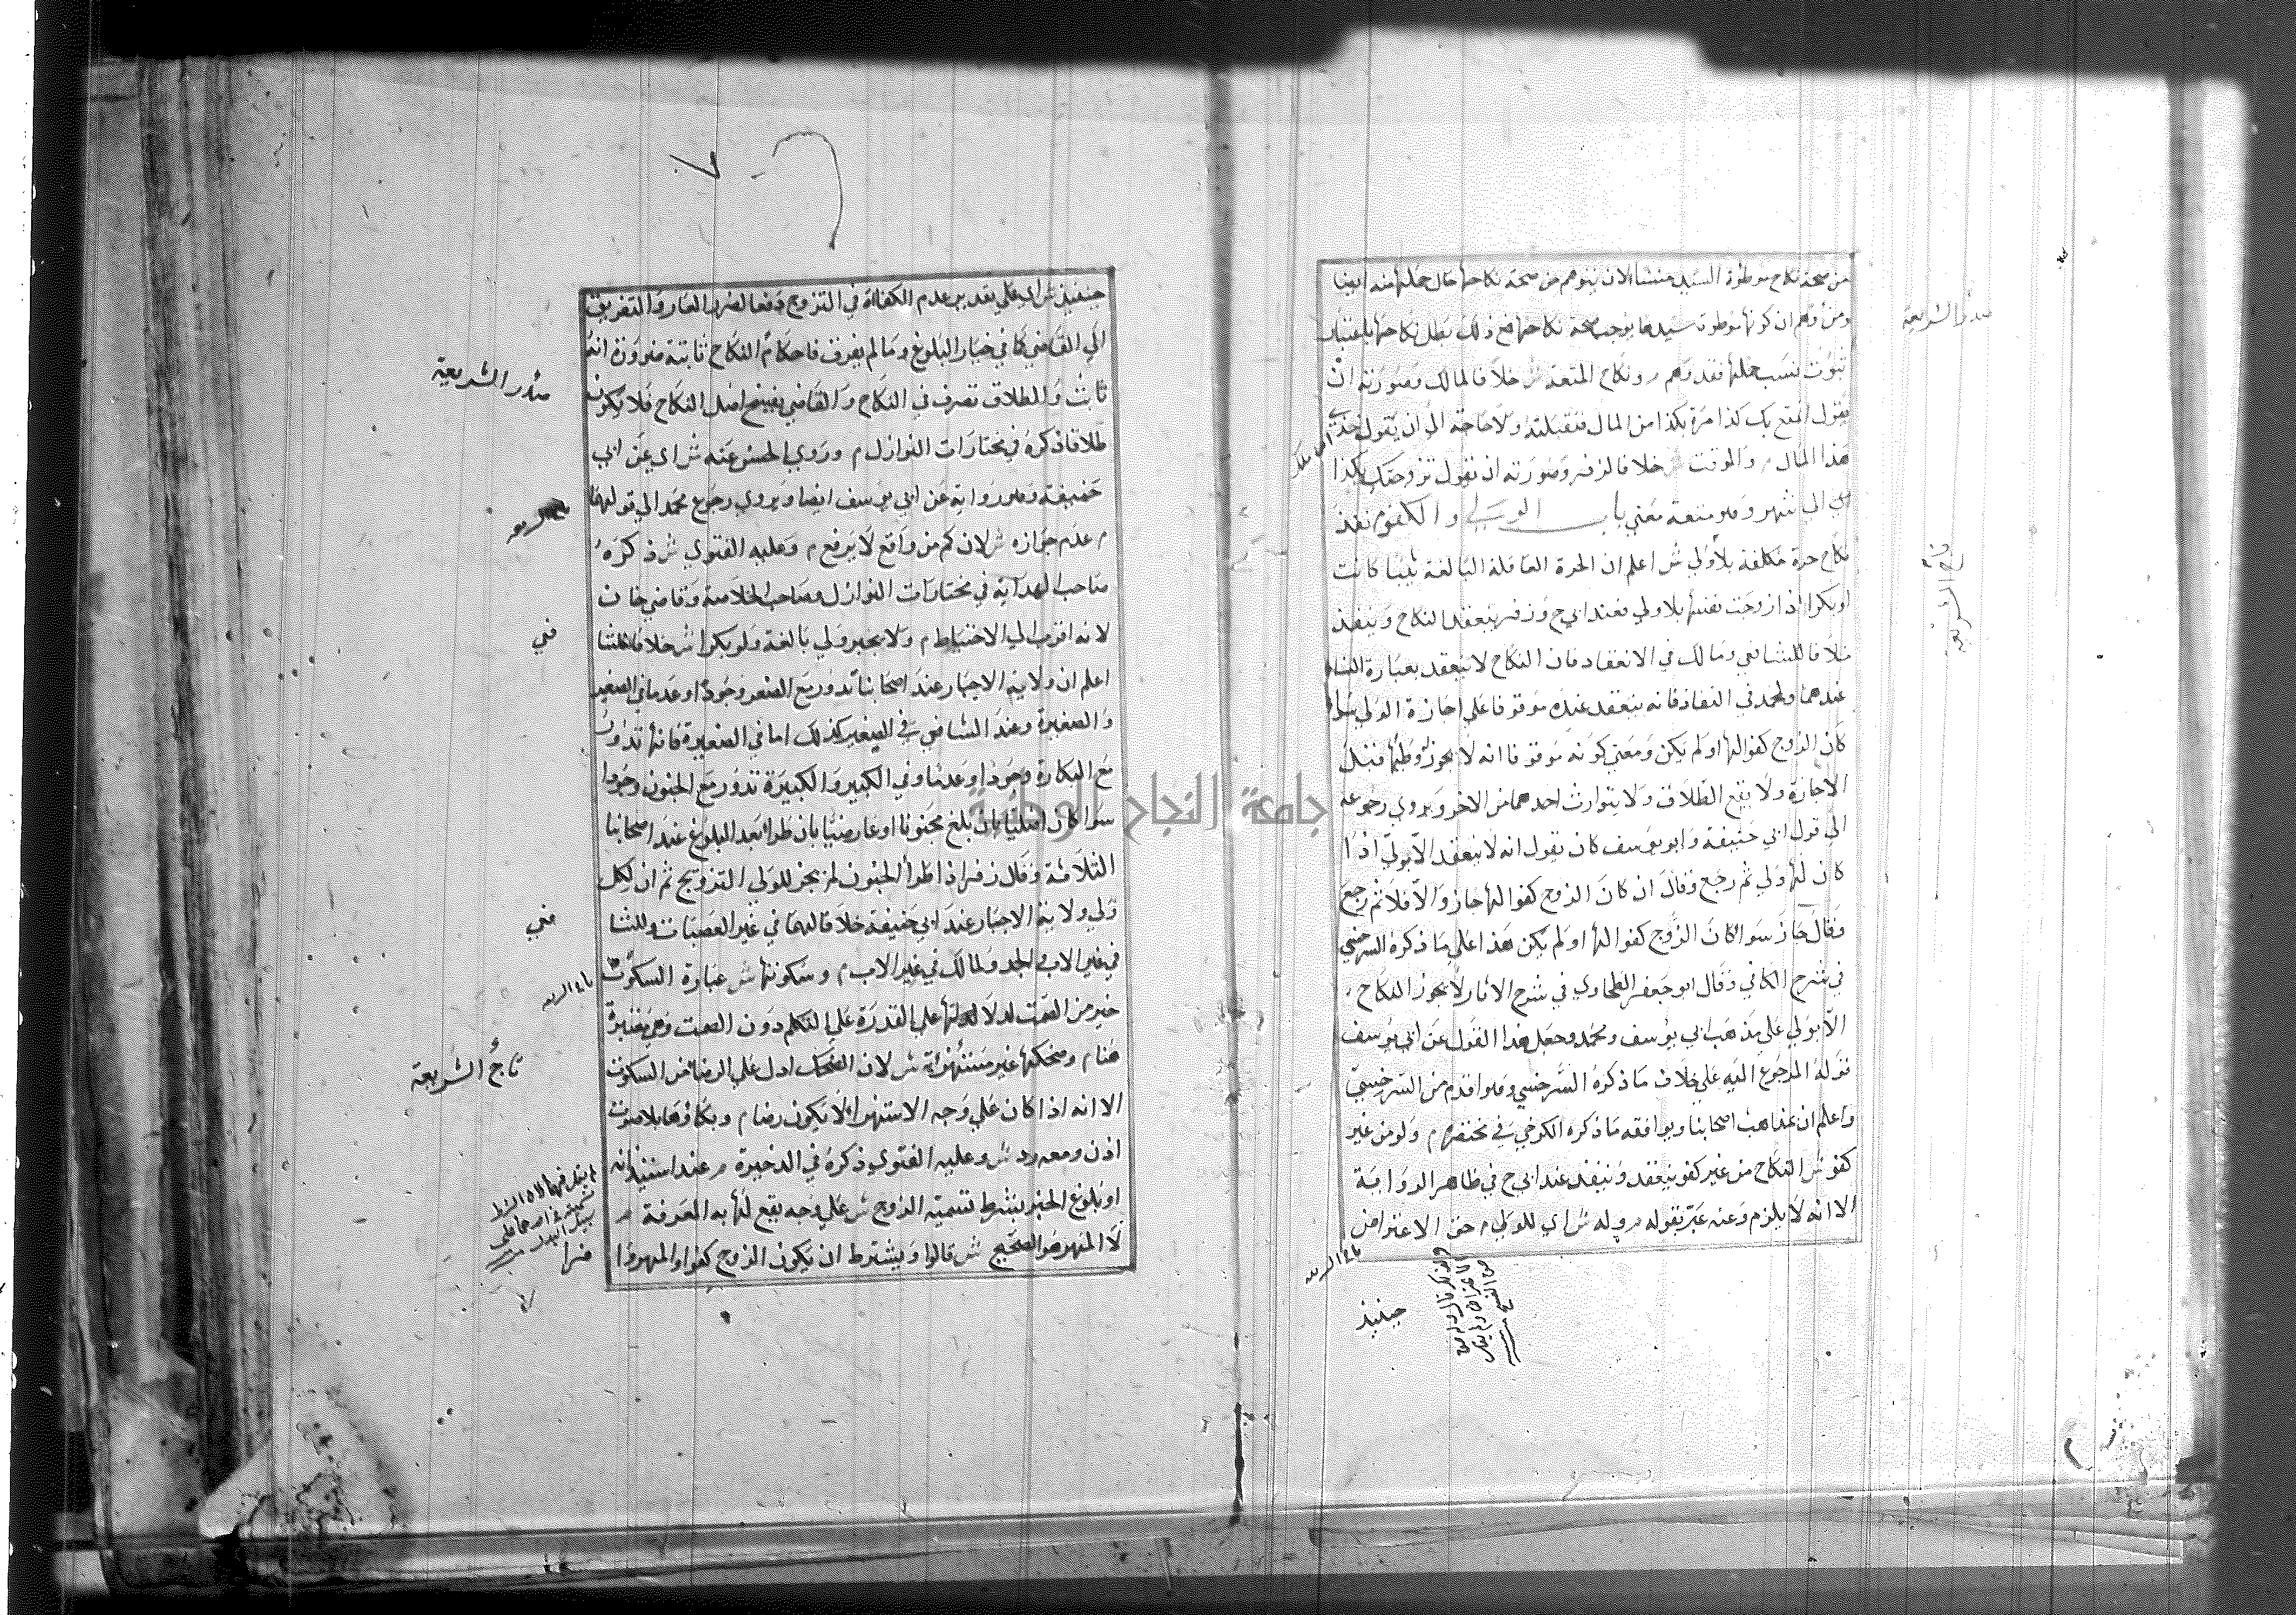 من صحة نكاح موطوءة السيد منشا لان يتوهم من صحة نكاحها حال حملها منه ايضا
ومن وهم ان كونها موطوة سيدها يوجب صحة نكاحها فمع ذلك بطل نكاحها باعتبار
ثبوت نسب حملها فقد وهم م ونكاح المتعة ش خلافا لمالك وصورته ان
يقول اتمتع بك كذا مرة بكذا من المال فتقبلته ولا حاجة الى ان يقول خذي
هذا المال م والموقت ش خلافا لزفر وصورته ان تقول تزوجتك بكذا
الى شهر وهو متعة معنى باب الولي والكفو م نفذ
نكاح حرة مكلفة بلا ولي ش اعلم ان الحرة العاقلة البالغة ثيبا كانت
او بكرا اذا زوجت نفسها بلا ولي فعند ابي ح وزفر ينعقد النكاح وينفذ
خلافا للشافعي ومالك في الانعقاد فان النكاح لا ينعقد بعبارة النسا
عندهما ولمحمد في النفاذ فانه ينعقد عنده موقوفا على اجازة الولي سوا
كان الزوج كفوا لها او لم يكن ومعنى كونه موقوفا انه لا يجوز وطئها قبل
الاجازة ولا يقع الطلاق ولا يتوارث احدهما من الاخر ويروى رجوعه
الى قول ابي حنيفة وابو يوسف كان يقول انه لا ينعقد الا بولي اذا
كان لها ولي ثم رجع وقال ان كان الزوج كفوا لها جاز والا فلا ثم رجع
وقال جاز سوا كان الزوج كفوا لها او لم يكن هذا على ما ذكره السرخسي
في شرح الكافي وقال ابو جعفر الطحاوي في شرح الاثار لا يجوز النكاح
الا بولي على مذهب ابي يوسف ومحمد وجعل هذا القول عن ابي يوسف
قوله المرجوع اليه على خلاف ما ذكره السرخسي وهو اقدم من السرخسي
واعلم ان مذاهب اصحابنا ويوافقه ما ذكره الكرخي في مختصره م ولو من غير
كفو ش النكاح من غير كفو ينعقد وينفذ عند ابي ح في ظاهر الرواية
الا انه لا يلزم وعنه عبر بقوله م وله ش اي للولي م حق الاعتراض
حينئذ
صدر الشريعة
تاج الشريعة
حينئذ ش اي على تقدير عدم الكفاءة في التزوج دفعا لضرر العار والتفريق
الى القاضي كما في خيار البلوغ وما لم يفرق فاحكام النكاح ثابتة ضرورة انه
ثابت والطلاق تصرف في النكاح والقاضي يفسخ اصل النكاح فلا يكون
طلاقا ذكره في مختارات النوازل م وروى الحسن عنه ش اي عن ابي
حنيفة وهو رواية عن ابي يوسف ايضا ويروى رجوع محمد الى قولهما
م عدم جوازه ش لان كم من واقع لا يرفع م وعليه الفتوى ش ذكره
صاحب الهداية في مختارات النوازل وصاحب الخلاصة وقاضي خان
لانه اقرب الى الاحتياط م ولا يجبر ولي بالغة ولو بكرا ش خلافا للشا
اعلم ان ولاية الاجبار عند اصحابنا تدور مع الصغر وجودا وعدما في الصغير
والصغيرة وعند الشافعي في الصغير كذلك اما في الصغيرة فانها تدور
مع البكارة وجودا وعدما وفي الكبير والكبيرة تدور مع الجنون وجودا
سوا كان اصليا بان بلغ مجنونا او عارضيا بان طرا بعد البلوغ عند اصحابنا
الثلاثة وقال زفر اذا طرا الجنون لم يجز للولي التزويج ثم ان لكل
ولي ولاية الاجبار عند ابي حنيفة خلافا لهما في غير العصبات وللشا
في غير الاب والجد ولمالك في غير الاب م وسكوتها ش عبارة السكوت
خير من الصمت لدلالتها على القدرة على التكلم دون الصمت وهي معتبرة
هنا م وضحكها غير مستهزئة ش لان الضحك ادل على الرضا من السكوت
الا انه اذا كان على وجه الاستهزاء لا يكون رضا م وبكاؤها بلا صوت
اذن ومعه رد ش وعليه الفتوى ذكره في الذخيرة م عند استئذانه
او بلوغ الخبر بشرط تسمية الزوج ش على وجه يقع لها به المعرفة م
لا المهر هو الصحيح ش قالوا ويشترط ان يكون الزوج كفوا والمهر وافرا
صدر الشريعة
في
فعي
تاج الشريعة
جامعة النجاح الوطنية